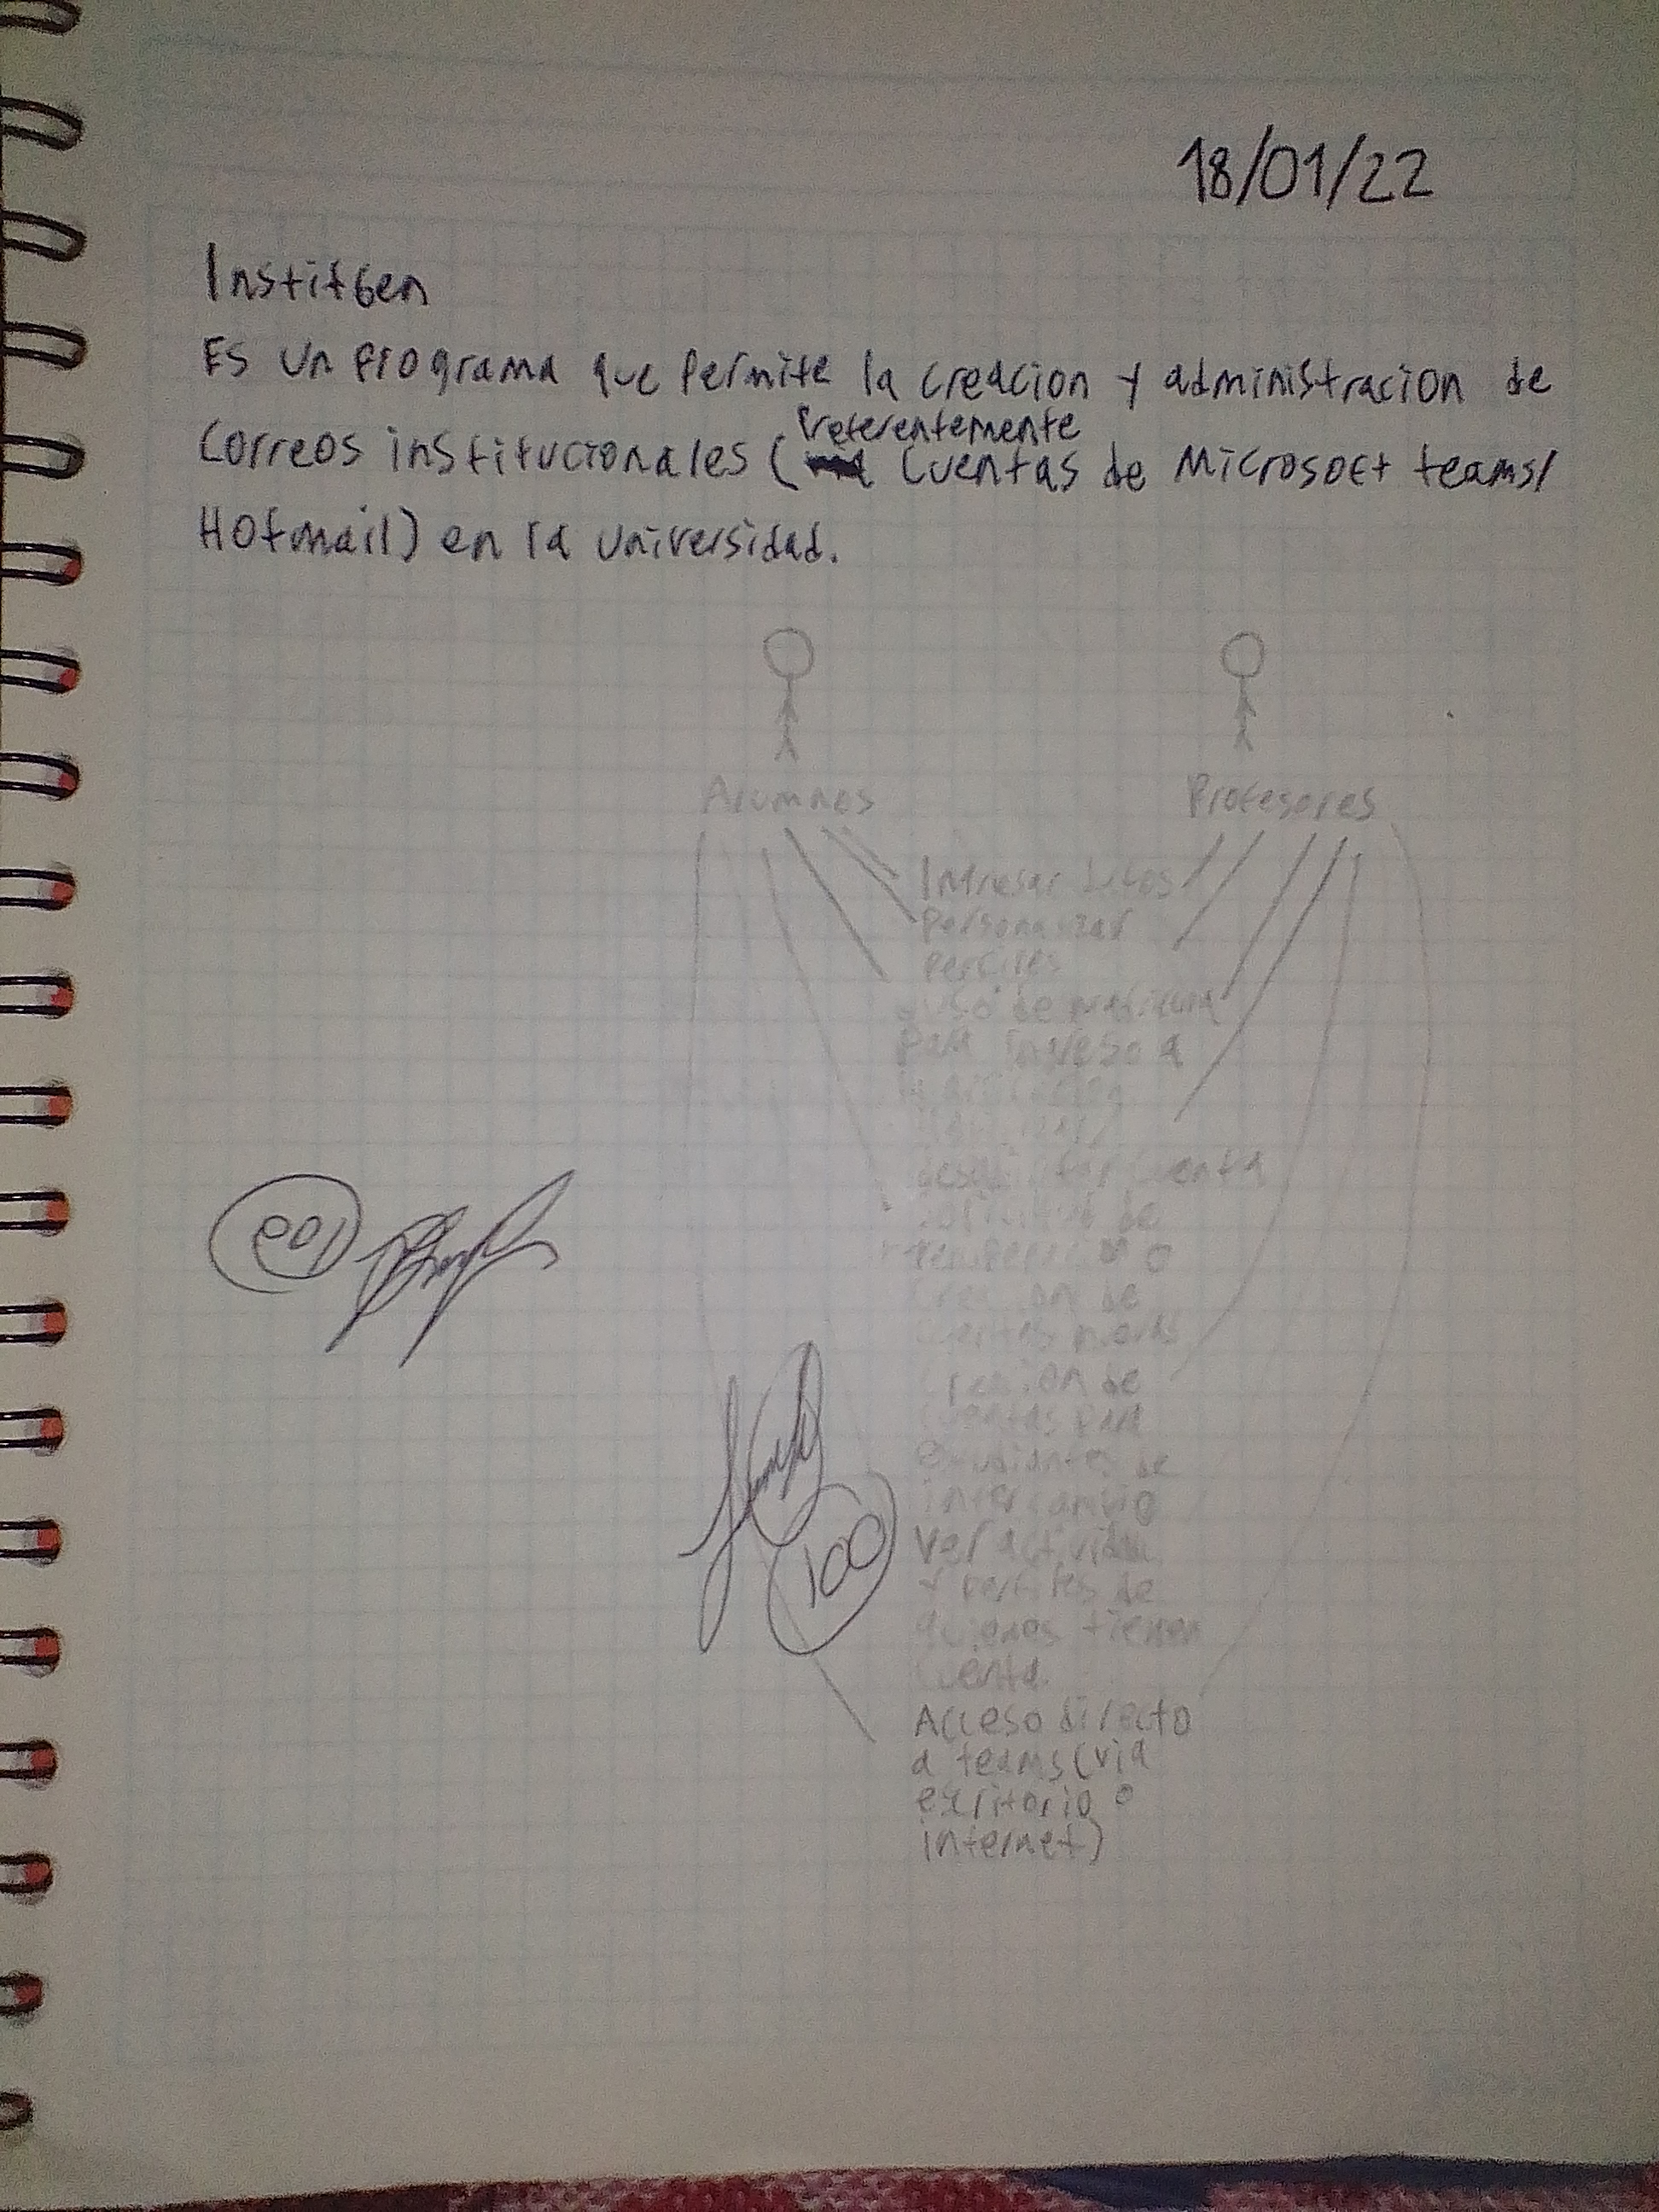 18/01/22
InstitGen
Es un programa que permite la creacion y administracion de
Preferentemente
correos institucionales ( cuentas de Microsoft teams/
Hotmail) en la universidad.
Alumnos Profesores
Ingresar datos
Personalizar
perfiles
uso de matricula
para ingreso a
cuenta
de
o
Creacion de
cuentas nuevas
Creacion de
cuentas para
estudiantes de
intercambio
Ver actividad
y perfiles de
quienes tienen
cuenta.
Acceso directo
a teams (via
escritorio o
internet)
100
100